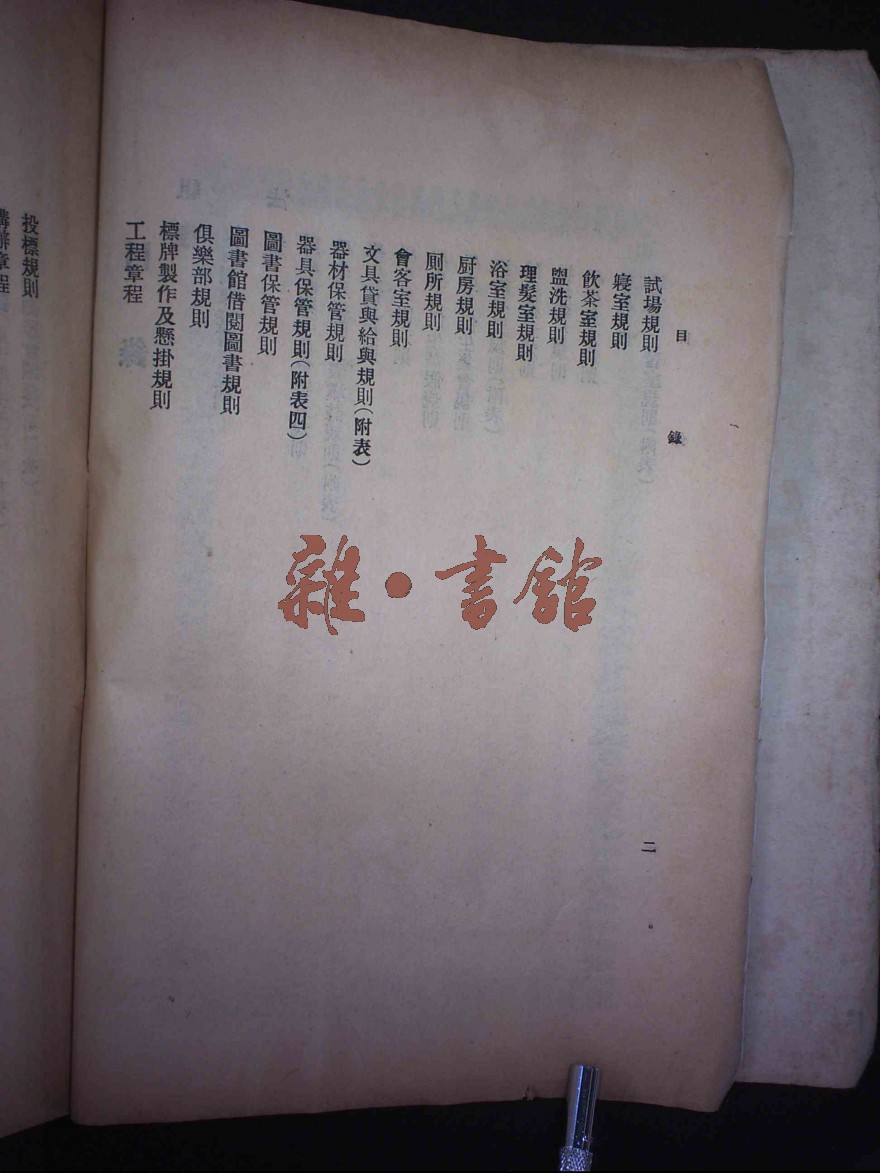 目錄
試場規則
寢室規則
飲茶室規則
盥洗規則
理髮室規則
浴室規則
厨房規則
厠所規則
會客室規則
文具貸與給與規則(附表)
器材保管規則
器具保管規則(附表四)
圖書保管規則
圖書館借閱圖書規則
俱樂部規則
標牌製作及懸掛規則
工程章程
二
投標規則
購辦章程
雜·書館